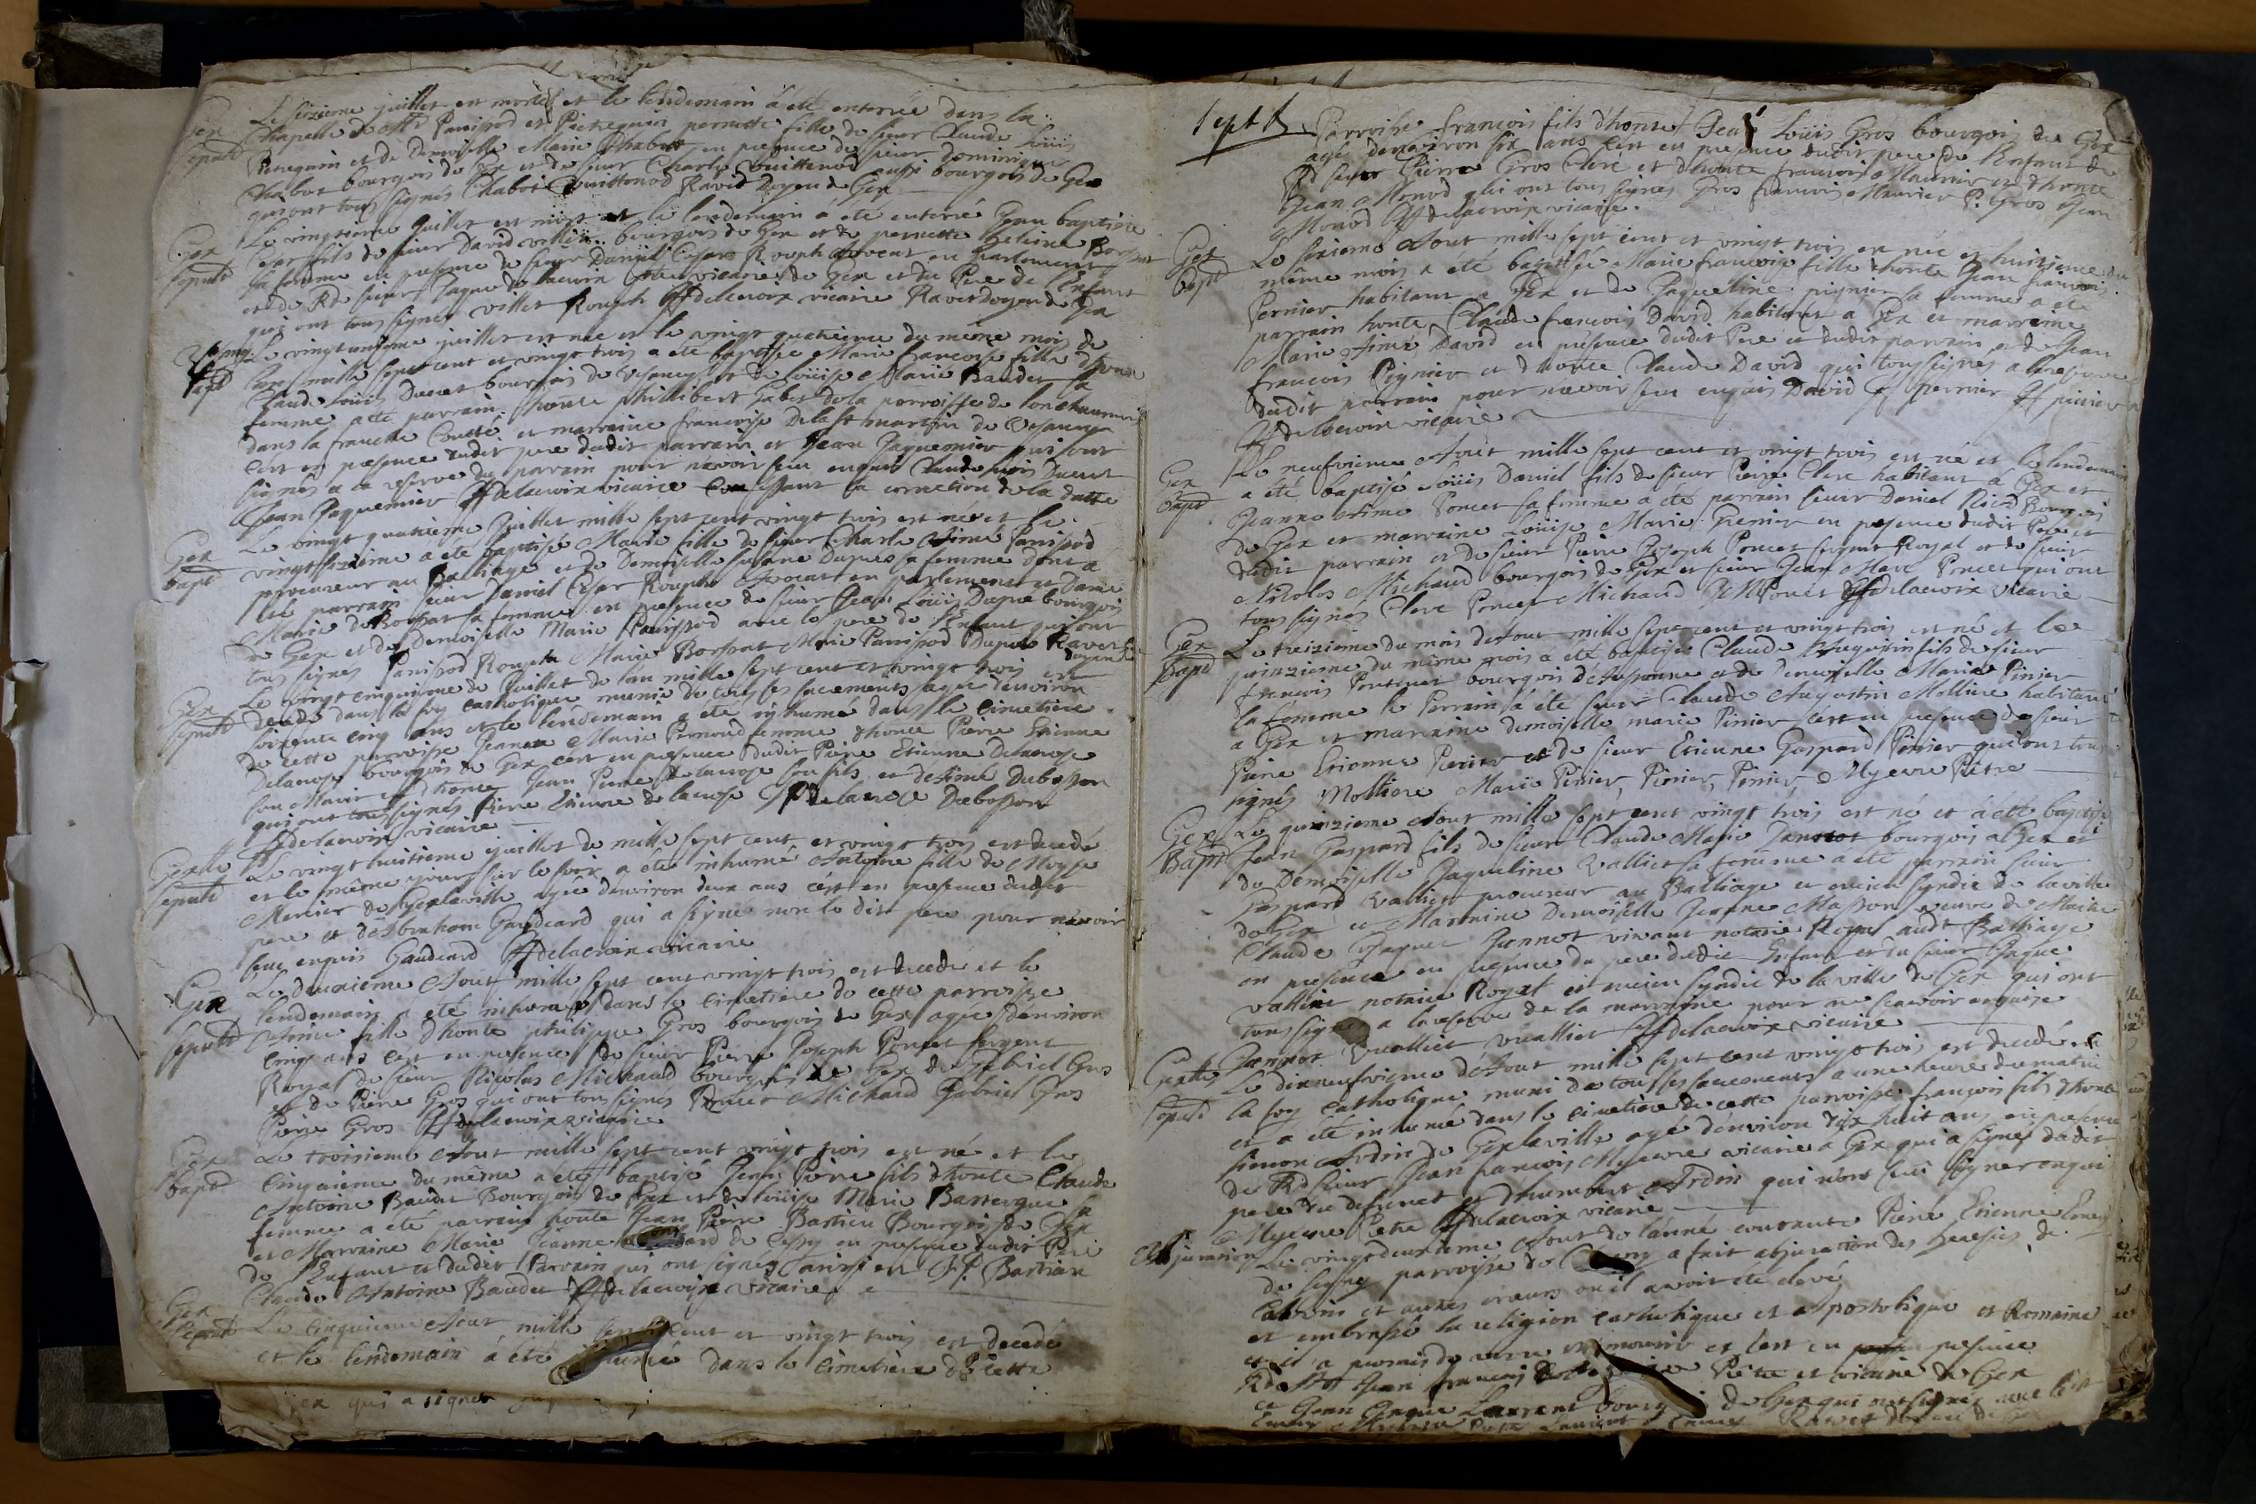 Gex Le seizieme juillet est morte et le lendemain a été enterrée dans la
sepult chapelle de Mr Panissod et Pietrequin pernette fille de sieur Claude Louis
et de Demoiselle Marie Chabot en presence de sieur Dominique
Chabot bourgois de Gex et de sieur Charle Vuittenod aussi bourgois de Gex
qui ont tous signés Chabot Vuittonod Ravet Doyen de Gex
Gex Le vingtieme Juillet est mort et le lendemain a été enterré Jean baptiste
sepult fils de sieur David villet bourgois de Gex et de pernette
sa femme en presence de sieur Daniel Cesar Rouph advocat en parlement
et de Rd sieur Jaque de lacroix vicaire de Gex et du Pere de l'enfant
qui ont tous signés villet Rouph Jfdelacroix vicaire Ravet doyen de Gex
Le vingtunieme juillet est née et le vingt quatrieme du même mois de
bapt l'an mille sept cent et vingt trois a été baptisée Marie francoise fille d'honte
Claude Louis Ducret bourgois de Vesancy et de Louise Marie Baudet sa
femme a été parrain honte phillibert Gabet de la parroisse de lonchaumois
dans la franche Comté et marraine francoise Delast martin de Vesancy
c'est en presence dudit pere dudit parrain et Jean Jaquemier qui sont
signés a la reserve du parrain pour n'avoir sceu enquis Claude Louis Ducret
Jean Jaquemier Jfdelacroix vicaire la correction de la datte
Gex Le vingt quatrieme Juillet mille sept cent vingt trois est née et le
bapt vingt sixieme a été baptisée Marie fille de sieur Charle Aimé Panissod
procureur au Bailliage et de Demoiselle Susane Dupres sa femme dont a
été parrain sieur Daniel Cesar Rouph Advocat en parlement et Dame
Marie de Borssat sa femme en presence de sieur Jean Louis Dupré bourgois
de Gex et de Demoiselle Marie Panissod avec le pere de l'Enfant qui ont
tous signés Panissod Rouph Marie Borssat Marie Panissod Dupré Ravet
Gex Le vingt cinquieme de Juillet de l'an mille sept cent et vingt trois est
sepult decedé dans la foy catholique munie de tous ses sacrements agée d'environ
soixante cinq ans et le lendemain a été inhumée dans le cimetiere
de cette parroisse Jeanne Marie Pernoud femme d'honte Pierre Etienne
Delacroix bourgois de Gex c'est en presence dudit Pierre Etienne Delacroix
son Mari et d'honte Jean Pierre de lacroix son fils et d'Etienne Dubosson
qui ont tous signés Pierre Etienne de lacroix Jp de lacroix Dubosson
Jfdelacroix vicaire
Gexlle Le vingt huitieme juillet de mille sept cent et vingt trois est decedé
sepult et le même jour sur le soir a été inhumé Antoine fille de Moyse
Mercier de Gexlaville agée d'environ deux ans c'est en presence dudit
pere et d'Abraham Gaudeard qui a signé non le dit pere pour n'avoir
sceu enquis Gaudeard Jfdelacroix vicaire
Gex Le deuxieme Aout mille sept cent vingt trois est decedée et le
sepult lendemain a été inhumée dans le cimetiere de cette parroisse
fille d'honte philippe Gros bourgois de Gex agée d'environ
cinq ans c'est en presence de sieur Pierre Joseph Poncet sergent
Royal de sieur Nicolas Michaud bourgois de Gex de Gabriel Gros
et de Pierre Gros qui ont tous signés Poncet Michaud Gabriel Gros
Pierre Gros Jfdelacroix vicaire
Gex Le troisieme Aout mille sept cent vingt trois est né et le
bapt cinquieme du même a été baptisé Jean Pierre fils d'honte Claude
Antoine Baudet Bourgois de Gex et de Louise Marie
femme a été parrain honte Jean Pierre Bastien Bourgois de Gex
et Marraine Marie Jeanne de Cessy en presence dudit Pere
de l'Enfant et dudit Parrain qui ont signés J. P. Bastian
Claude Antoine Baudet Jfdelacroix vicaire
Gex Le cinquieme Aout mille sept cent et vingt trois est decedé
sepult et le lendemain a été dans le cimetiere de cette
Gex qui a signer
Parroisse francois fils d'honte Jean Louis Gros bourgois de Gex
agé d'environ six ans c'est en presence dudit pere de l'Enfant de
Rd sieur Pierre Gros Clerc et d'honte francois Maunier et d'honte
Jean Monod qui ont tous signés Gros francois Maunier P. Gros Jean
Monod Jfdelacroix vicaire
Gex Le sixieme Aout mille sept cent et vingt trois est née et huitieme du
bapt même mois a été baptisée Marie francoise fille d'honte Jean francois
Pernier habitant a Gex et de Jaqueline pignier sa femme a été
parrain honte Claude francois David habitant a Gex et marraine
Marie Aimé David en presence dudit Pere et dudit parrain et de Jean
francois Pignier et d'honte Claude David qui tous signés a la reserve
dudit parrain pour n'avoir sceu enquis David Pernier
Jfdelacroix vicaire
Gex Le neufvieme Aout mille sept cent et vingt trois est né et le lendemain
bapt a été baptisé Louis Daniel fils de sieur Pierre Clerc habitant a Gex et
Jeanne Aimé Poncet sa femme a été parrain sieur Daniel Bourgois
de Gex et marraine Louise Marie Grenier en presence dudit Pere et
dudit parrain et de sieur Pierre Joseph Poncet sergent Royal et de sieur
Nicolas Michaud bourgois de Gex et sieur Jean Marc Poncet qui ont
tous signés Clerc Poncet Michaud JM Poncet Jfdelacroix vicaire
Gex Le treizieme du mois d'Aout mille sept cent et vingt trois est né et le
bapt quinzieme du même mois a été baptisé Claude Augustin fils de sieur
francois bourgois d'Auxonne et de Demoiselle Marie Pinier
sa femme le Parrain a été sieur Claude Augustin Molliere habitant
a Gex et marraine demoiselle marie Pinier c'est en presence de sieur
Pierre Etienne Pinier et de sieur Etienne Gaspard Pinier qui ont tous
signés Molliere Marie Pinier, Pinier, Pinier, Myevre Pretre
Gex Le quinzieme Aout mille sept cent vingt trois est né et a été baptisé
Bapt Jean Gaspard fils de sieur Claude Marie Jannot bourgois a Gex et
de Demoiselle Jaqueline Valliet sa femme a été parrain sieur
Gaspard Valliet procureur au Balliage et ancien syndic de la ville
de Gex et Marraine Demoiselle Jeanne Masson veuve de Maitre
Claude Jaques Jannot vivant notaire Royal audt Balliage
en presence en presence du pere dudit Enfant et du sieur Jaque
valliet notaire Royal et ancien syndic de la ville de Gex qui ont
tous signé a la reserve de la marraine pour ne scavoir enquise
Jannot Vualliet vualliet Jfdelacroix vicaire
Gexlle Le dixneufvieme d'Aout mille sept cent vingt trois est decedé
sepult la foy catholique muni de tous ses sacrements a une heure du matin
et a été inhumé dans le cimetiere de cette parroisse francois fils d'honte
simeon Ardin de Gexlaville agé d'environ dix huit ans en presence
de Rd sieur Jean francois Myevre vicaire a Gex qui a signé dudit
pere du defunct et d'humbert Ardin qui n'ont sceu signer enquis
Myevre Petre Jfdelacroix vicaire
Abjuration Le vingtdeuxieme Aout de l'anné courante Pierre Etienne
de signy parroisse de a fait abjuration des heresies de
Calvin et autres erreurs ou il avoit été elevé
et embrassé la religion catholique et apostolique et Romaine
et il a promis de vivre et mourir et c'est en presence
Rd Mr Jean francois Pretre et vicaire de Gex
et Jean Laurent bourgois de Gex qui ont signés avec led